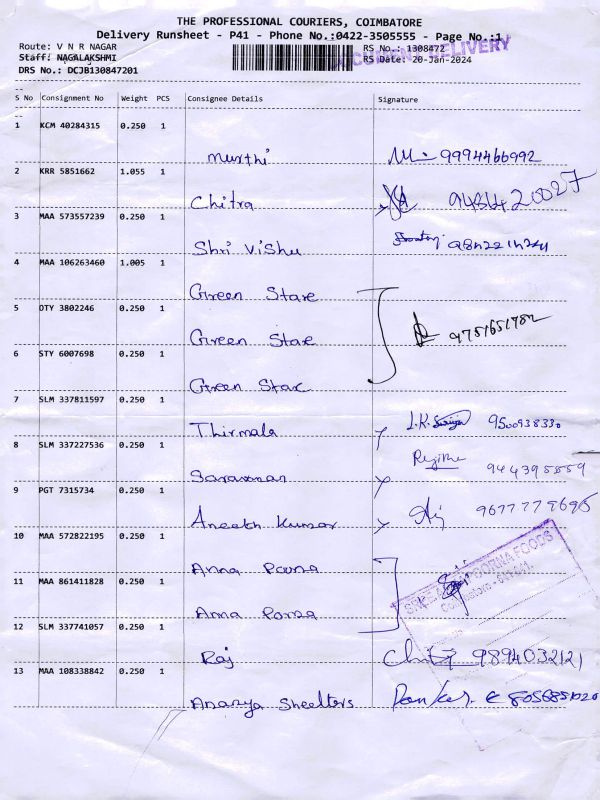 THE PROFESSIONAL COURIERS, COIMBATORE
Delivery Runsheet - P41 - Phone No.:0422-3505555 - Page No.:1
Route: V N R NAGAR
RS No.: 1308472
DOCUMENT DELIVERY
Staff: NAGALAKSHMI
RS Date: 20-Jan-2024
DRS No.: DCJB130847201
S No Consignment No Weight PCS Consignee Details Signature
1 KCM 40284315 0.250 1
Murthi 9994466992
2 KRR 5851662 1.055 1
Chitra 9486420027
3 MAA 573557239 0.250 1
Shri Vishu
4 MAA 106263460 1.005 1
Green Stare
5 DTY 3802246 0.250 1
Green Stare 9751651782
6 STY 6007698 0.250 1
Green Stare
7 SLM 337811597 0.250 1
Thirmala J.K. 9500938330
8 SLM 337227536 0.250 1
Saravanan 944395559
9 PGT 7315734 0.250 1
Aneeth Kumar 9677779695
10 MAA 572822195 0.250 1
Anna Porna
11 MAA 861411828 0.250 1
Anna Porna
12 SLM 337741057 0.250 1
Raj 9894032121
13 MAA 108338842 0.250 1
Ananya Sheelters